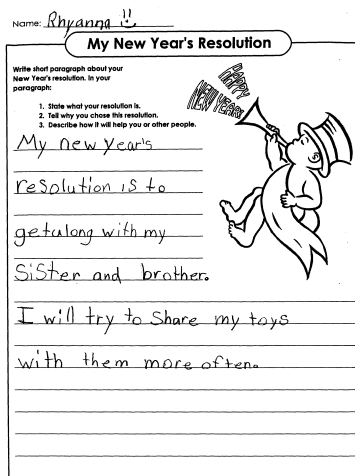 Name: Rhyanna !!
My New Year's Resolution
Write short paragraph about your
New Year's resolution. In your
paragraph:
1. State what your resolution is.
2. Tell why you chose this resolution.
3. Describe how it will help you or other people.
HAPPY
NEW YEAR!
My new year's
resolution is to
getalong with my
sister and brother.
I will try to share my toys
with them more often.